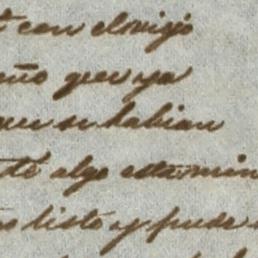 con el viejo
que ya
que se habian
te algo esta min
listo y pude